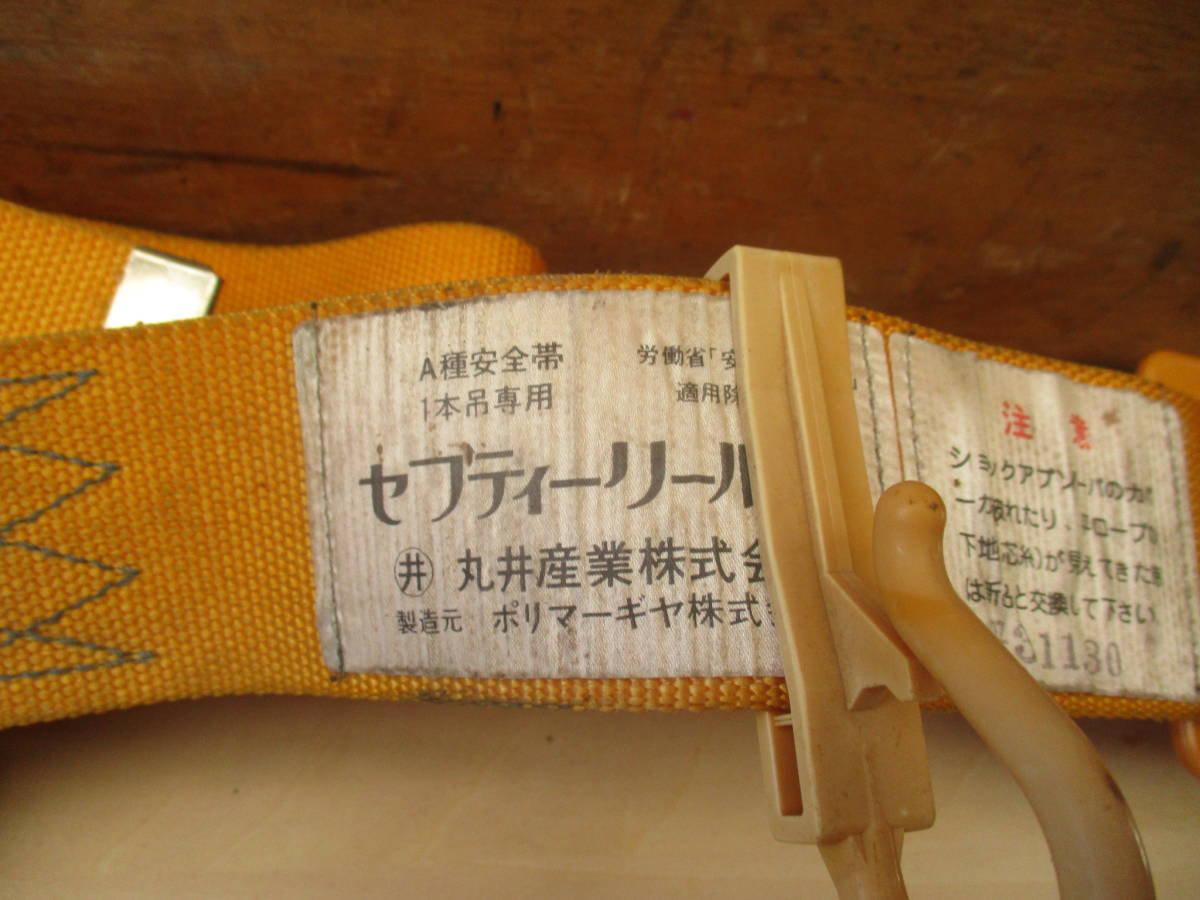 A種安全帯
1本吊専用
労働省「安
適用除
セフティーリール
㊉ 丸井産業株式会
製造元 ポリマーギヤ株式会
注意
ショックアブソーバのカバ
ーが破れたり、
下地(芯糸)が見えてきた
は新品と交換して下さい
31130